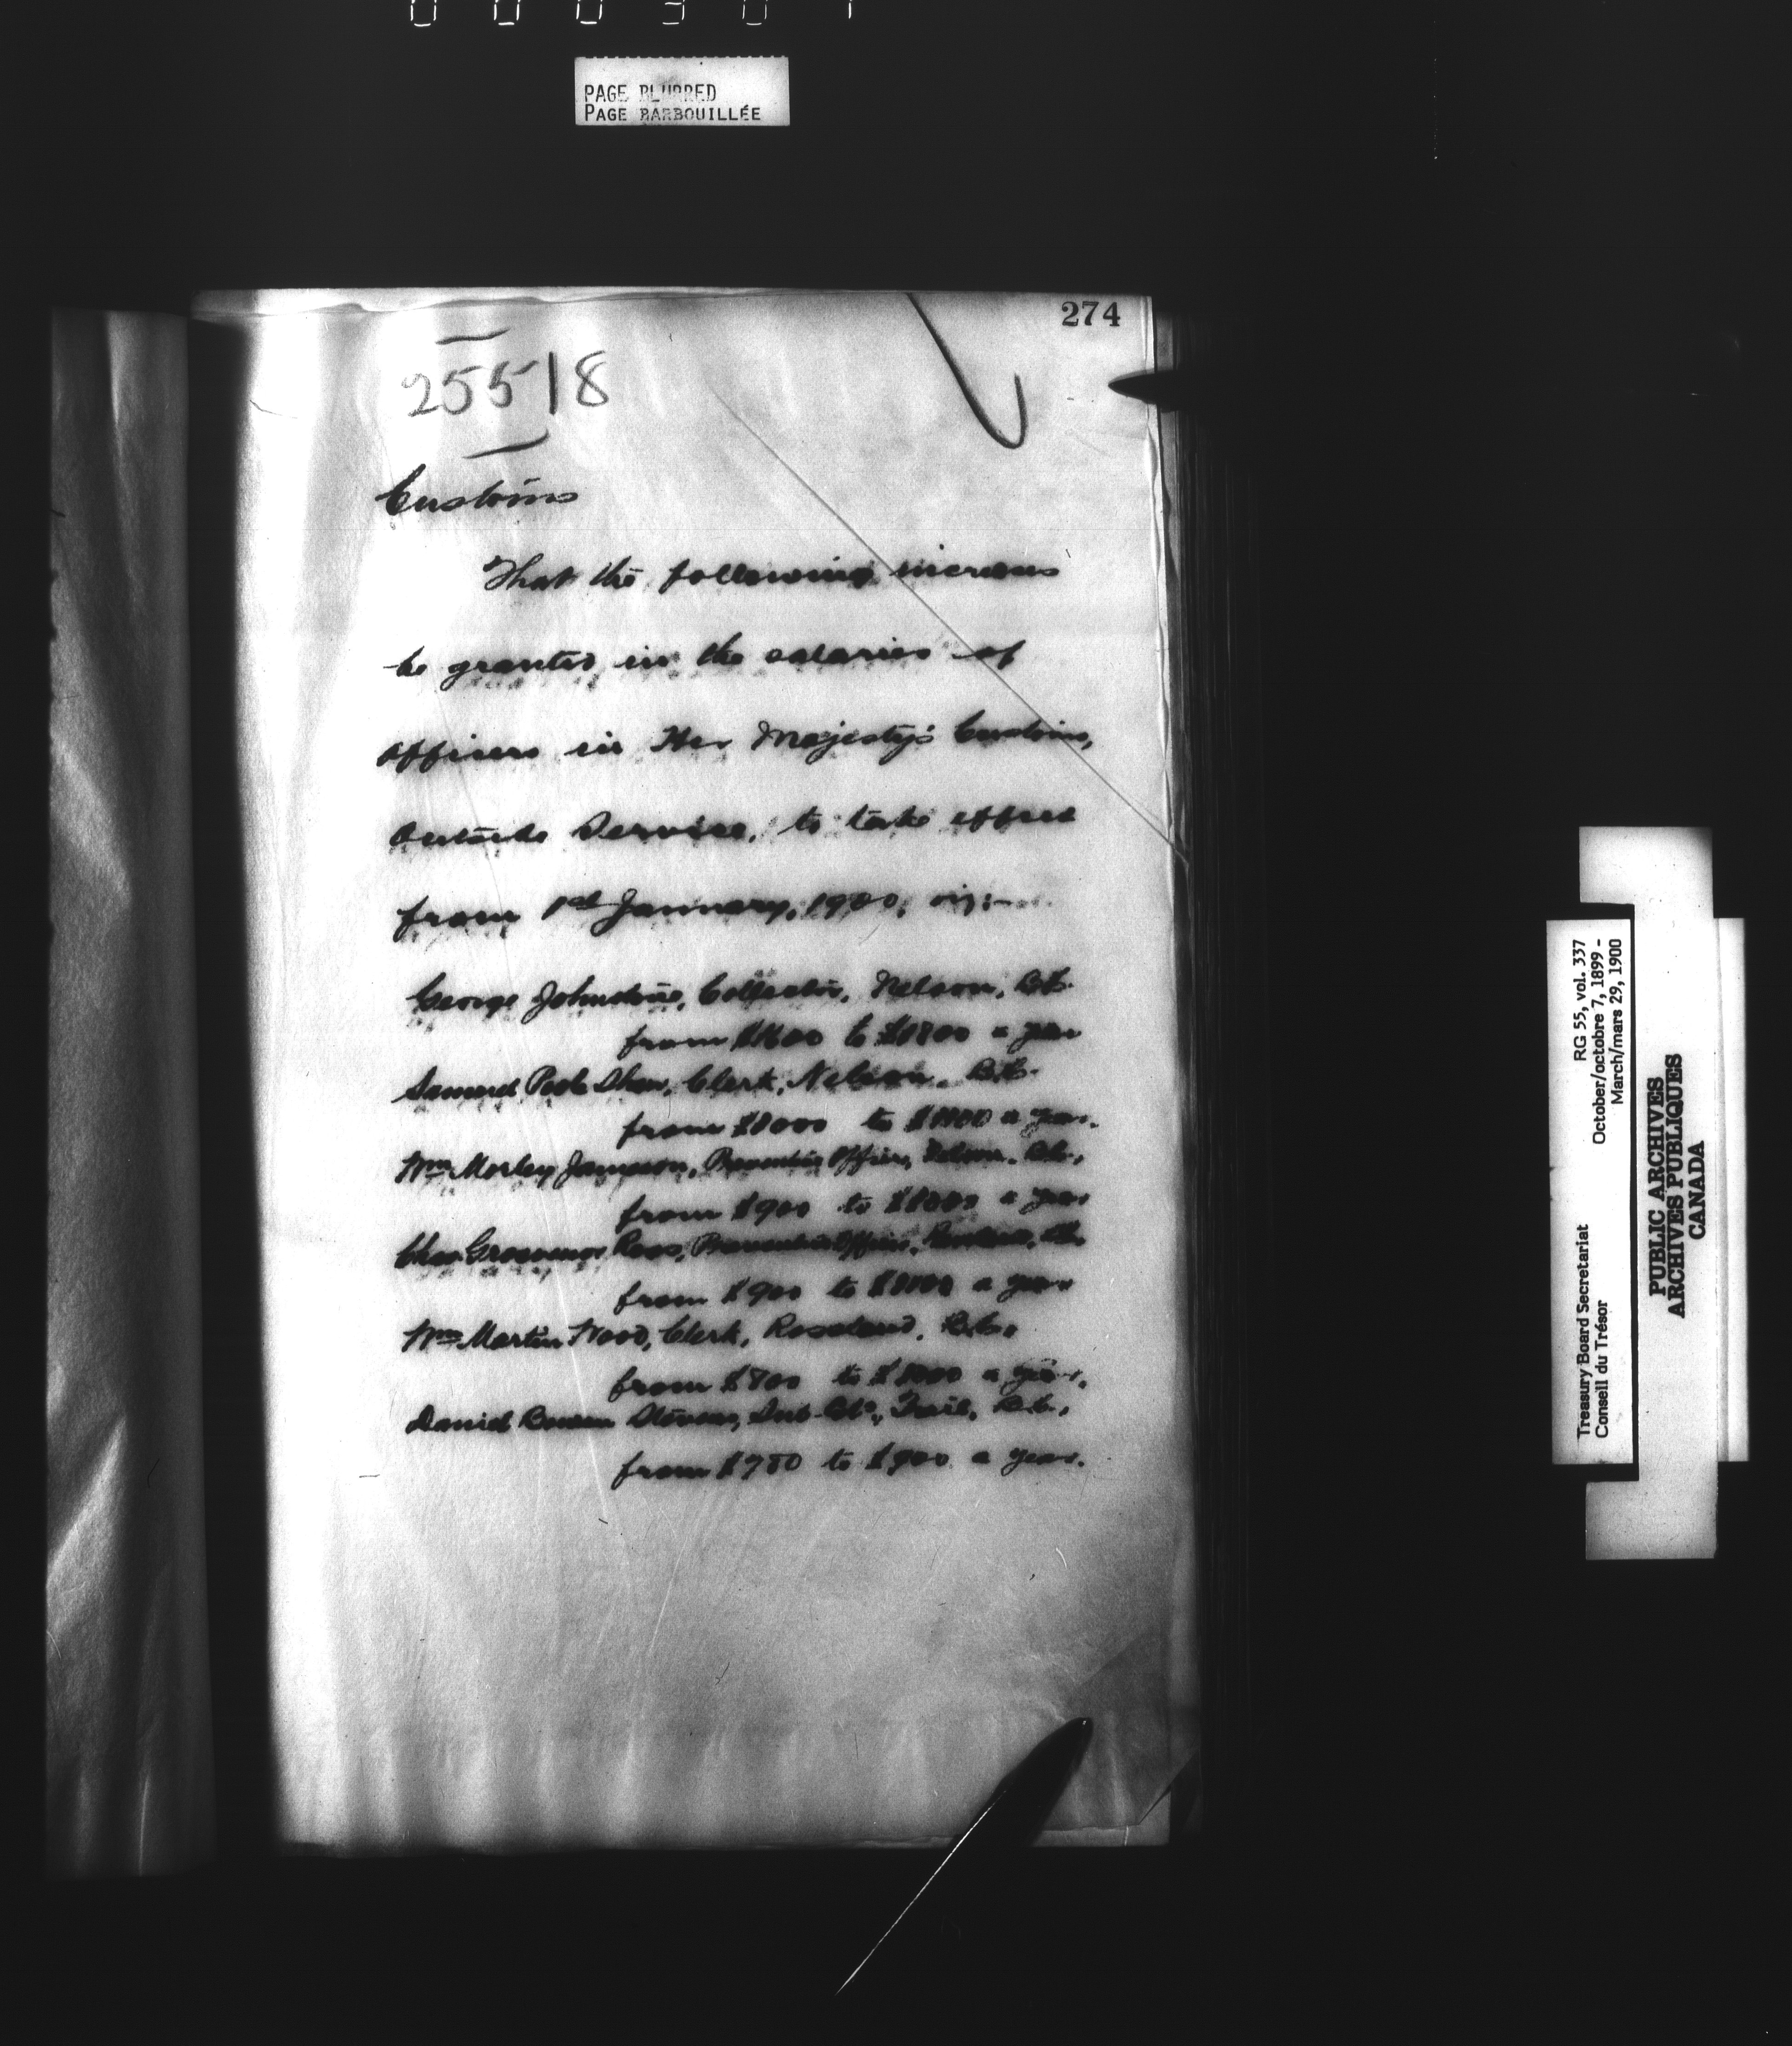 PAGE BLURRED
PAGE BARBOUILLÉE
274
25518
Customs
That the following increases
be granted in the salaries of
officers in Her Majesty's Customs,
Outside Service, to take effect
from 1st January, 1900, viz:—
George Johnstone, Collector, Nelson, B.C.
from $1600 to $1800 a year
Samuel Poole Shaw, Clerk, Nelson, B.C.
from $1000 to $1100 a year.
Wm Morley Jameson, Preventive Officer, Nelson, B.C.,
from $900 to $1000 a year
Chas Grosvenor Ross, Preventive Officer, B.C.
from $900 to a year
Wm Martin Wood, Clerk, Rossland, B.C.,
from to $1000 a year.
Daniel Stevens, Sub-Col., Trail, B.C.,
from to $900 a year.
RG 55, vol. 337
October/octobre 7, 1899 -
March/mars 29, 1900
Treasury Board Secretariat
Conseil du Trésor
PUBLIC ARCHIVES
ARCHIVES PUBLIQUES
CANADA